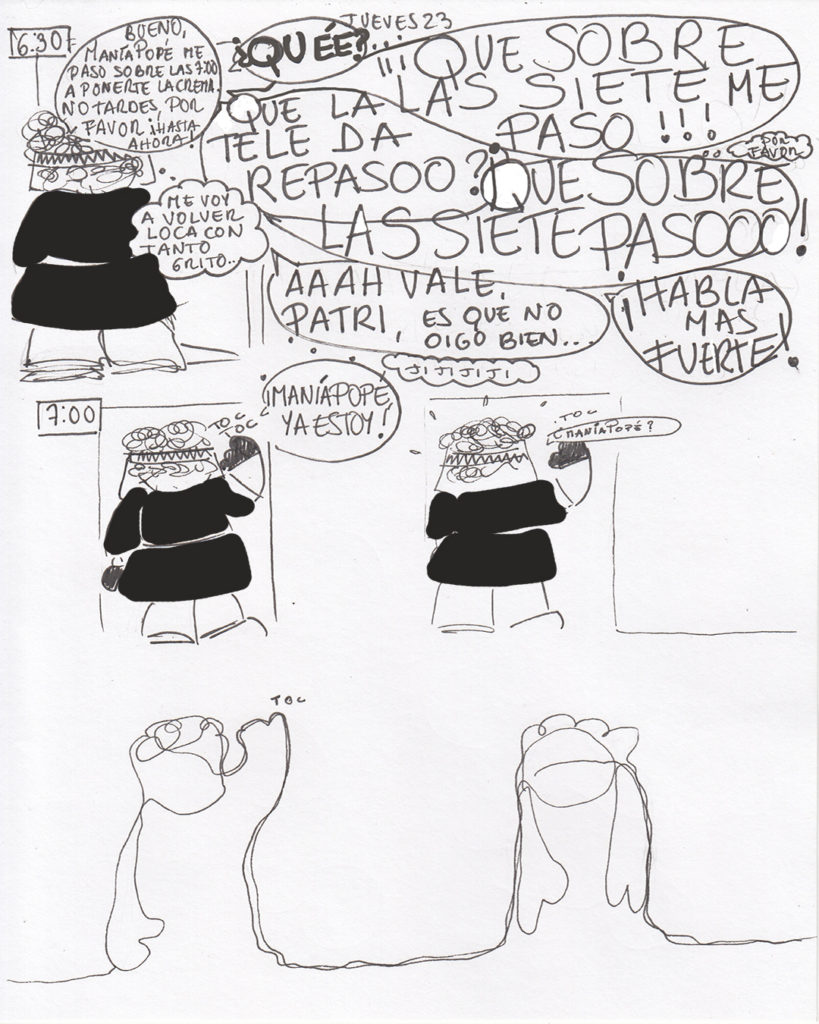 JUEVES 23
6:30
BUENO,
MANÍAPOPE ME
PASO SOBRE LAS 7:00
A PONERTE LA CREMA.
NO TARDES, POR
FAVOR ¡HASTA
AHORA!
¿QUÉÉ?...
¡¡¡QUE SOBRE
LAS SIETE ME
PASO!!!
POR
FAVOR
¿QUE LA
TELE DA
REPASOO?
¡QUE SOBRE
LAS SIETE PASOOO!
ME VOY
A VOLVER
LOCA CON
TANTO
GRITO..
AAAH VALE,
PATRI, ES QUE NO
OIGO BIEN...
¡HABLA
MAS
FUERTE!
JIJIJIJI
7:00
TOC
TOC
¡MANÍAPOPÉ,
YA ESTOY!
TOC
¿MANÍAPOPÉ?
TOC